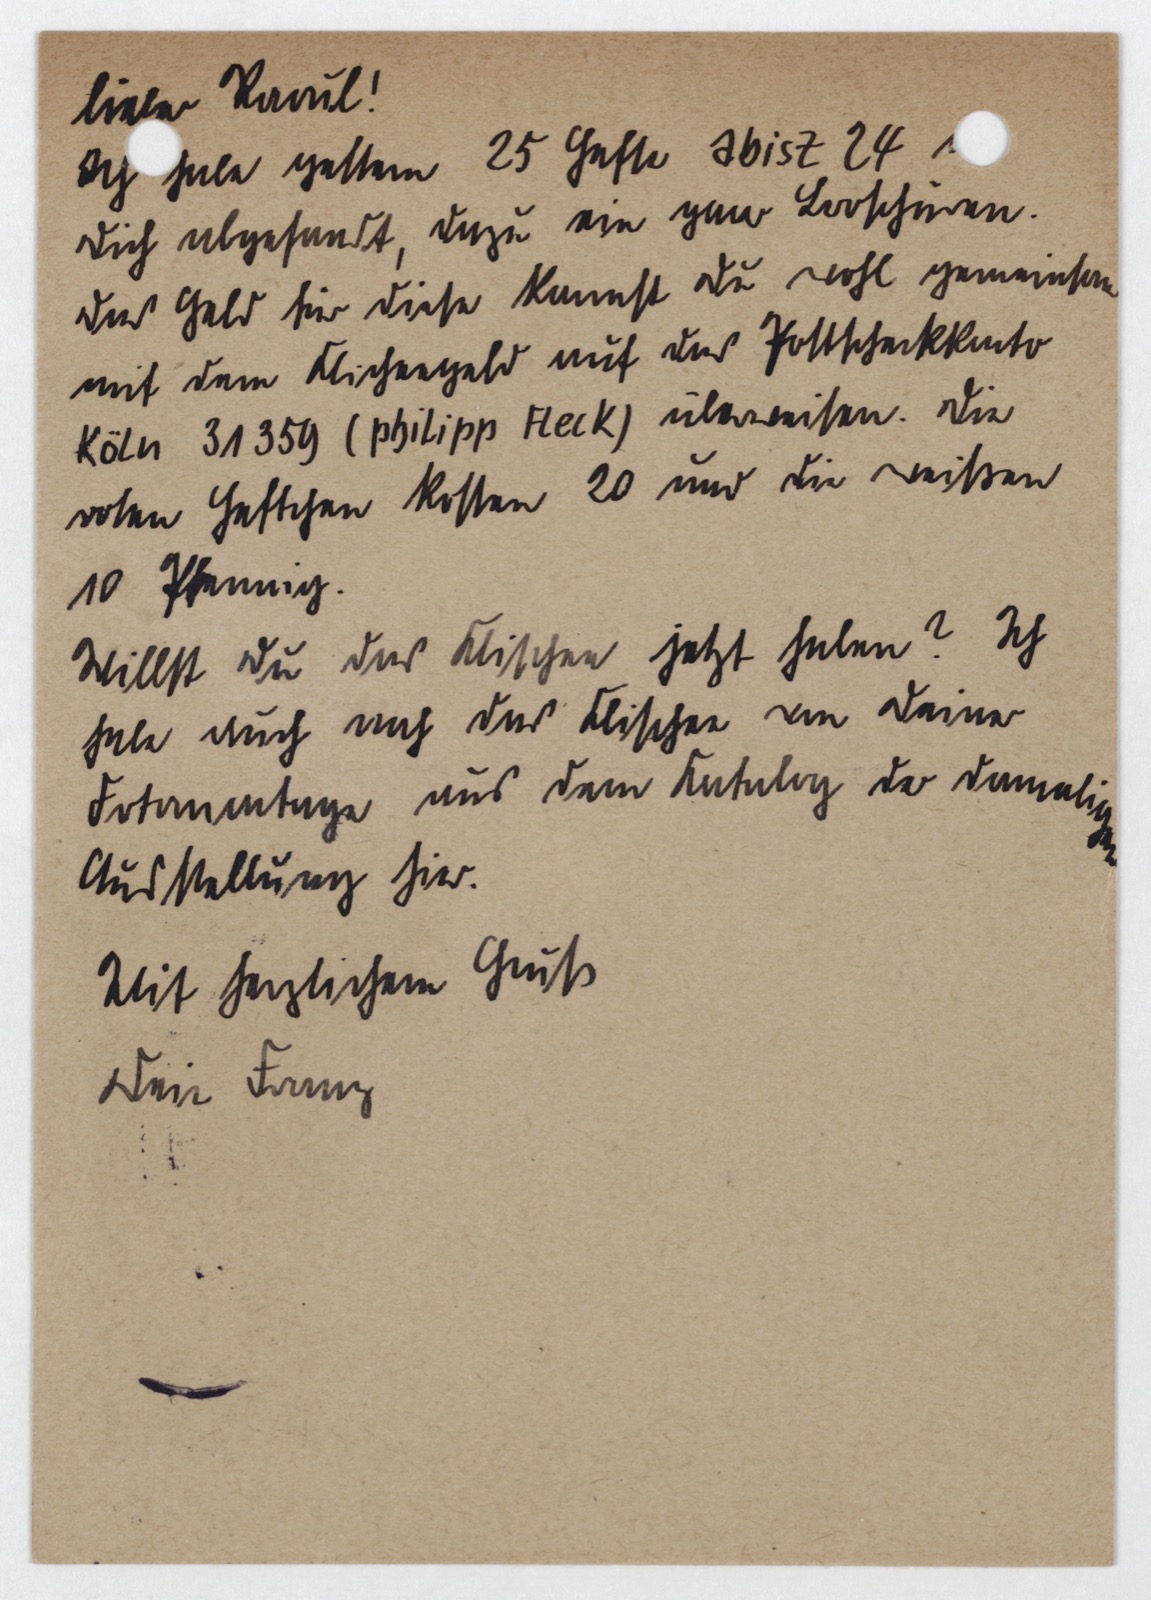 lieber Raoul!
Ich habe gestern 25 Hefte abisz 24 
dich abgesandt, dazu ein paar Broschüren.
das Geld für diese kannst du wohl gemeinsam
mit dem Klicheegeld auf das Postscheckkonto
Köln 31359 (philipp Fleck) überweisen. die
roten Heftchen kosten 20 und die weißen
10 Pfennig.
Willst du das Klischee jetzt haben? Ich
habe auch noch das Klischee von deiner
Fotomontage aus dem Katalog der damaligen
Ausstellung hier.
Mit herzlichem Gruß
dein Franz